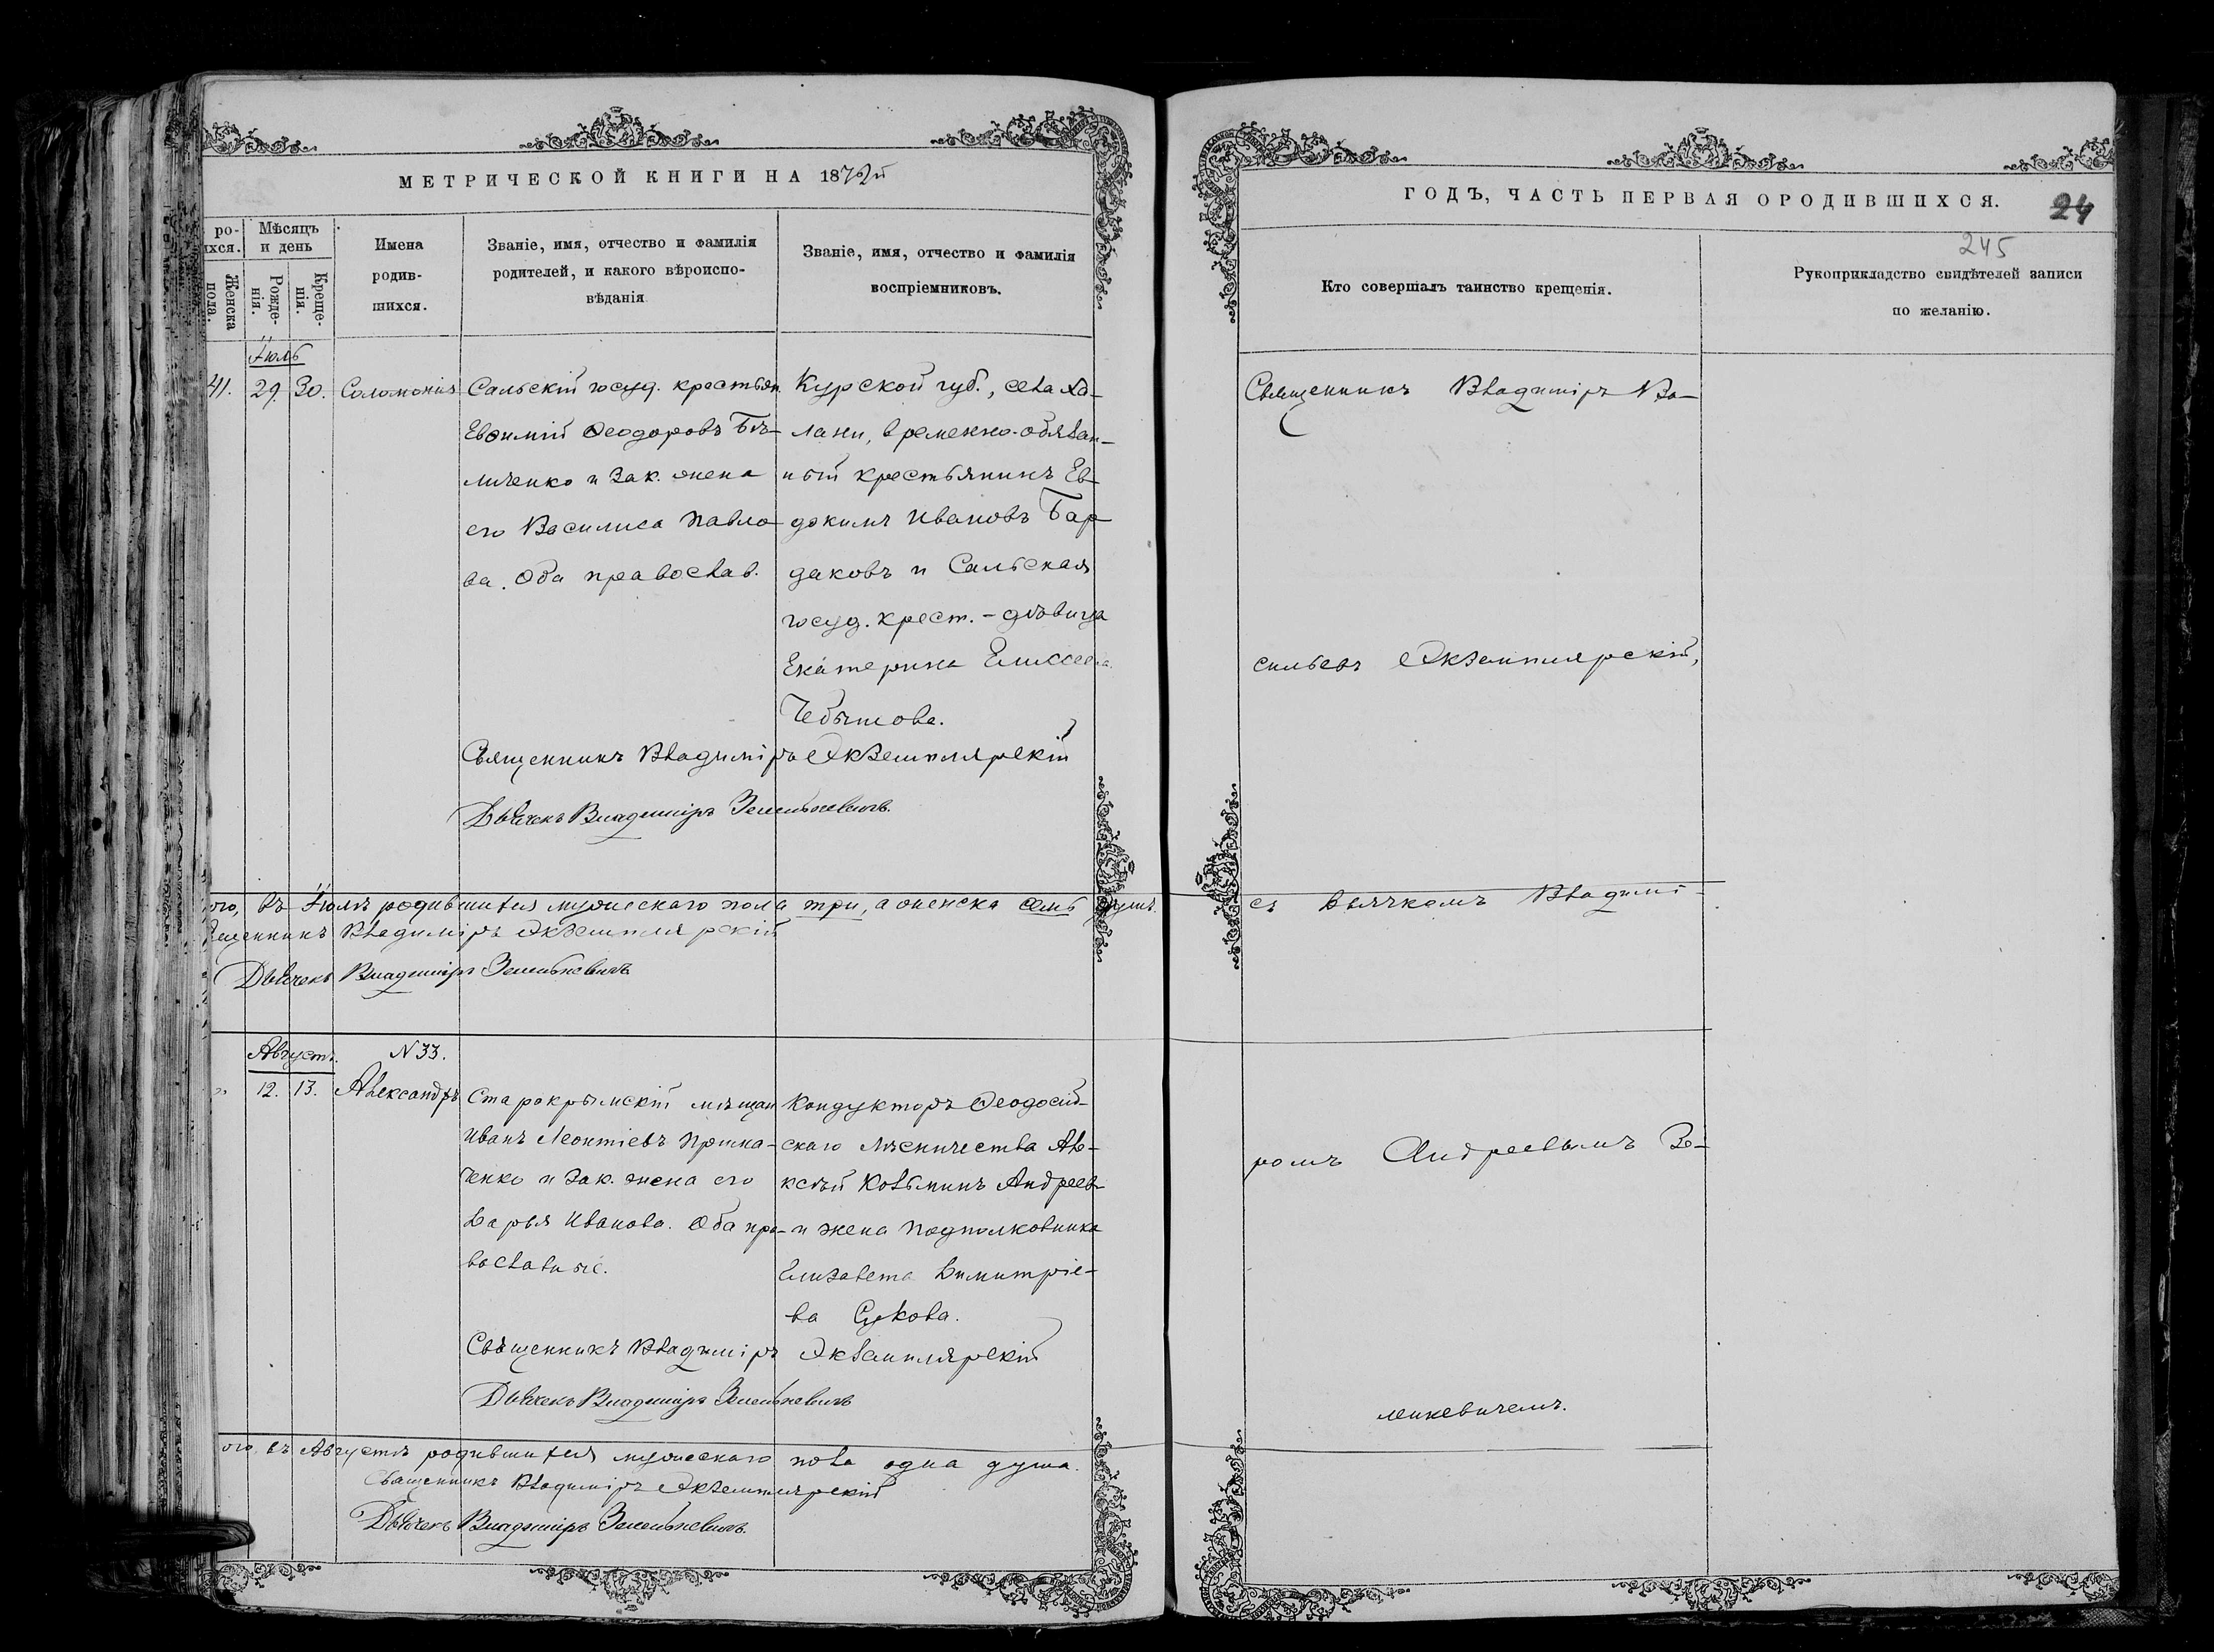 МЕТРИЧЕСКОЙ КНИГИ НА 1872й
ро-
ихся.
Женска
пола.
Мѣсяцъ
и день
Рожде-
нія.
Креще-
нія.
Имена
родив-
шихся.
Званіе, имя, отчество и фамилія
родителей, и какого вѣроиспо-
вѣданія
Званіе, имя, отчество и фамилія
воспріемниковъ.
Іюль
41. 29. 30. Соломонія
Сальскій госуд. крестьян.
Евѳимій Ѳеодоровъ Бѣ-
личенко и зак. жена
его Василиса Павло-
ва. Оба православ.
Курской губ., села Ха-
лани, временно-обязан-
ный крестьянинъ Ев-
докимъ Ивановъ Бар-
даковъ и Сальская
госуд. крест. - дѣвица
Екатерина Елисеева
Священникъ Владиміръ Экземплярскій
Дьячекъ Владиміръ
ого, въ Іюлѣ родившихся мужескаго пола три, а женска семь душъ.
Священникъ Владиміръ Экземплярскій
Дьячекъ Владиміръ
Августъ. N 33.
12. 13. Александръ
Старокрымскій мѣщан
Иванъ Леонтіевъ
и зак. жена его
Дарья Иванова. Оба пра-
вославные.
Кондукторъ Ѳеодосій-
скаго лѣсничества Але-
ксѣй Козьминъ Андреев
и жена подполковника
Елизавета Димитріе-
ва
Священникъ Владиміръ Экземплярскій
Дьячекъ Владиміръ
ого въ Августѣ родившихся мужескаго пола одна душа.
Священникъ Владиміръ Экземплярскій
Дьячекъ Владиміръ
ГОДЪ, ЧАСТЬ ПЕРВАЯ О РОДИВШИХСЯ.
24
245
Кто совершалъ таинство крещенія.
Рукоприкладство свидѣтелей записи
по желанію.
Священникъ Владиміръ Ва-
сильевъ Экземплярскій,
съ дьячкомъ Владимі-
ромъ Андреевымъ Зе-
ленкевичемъ.